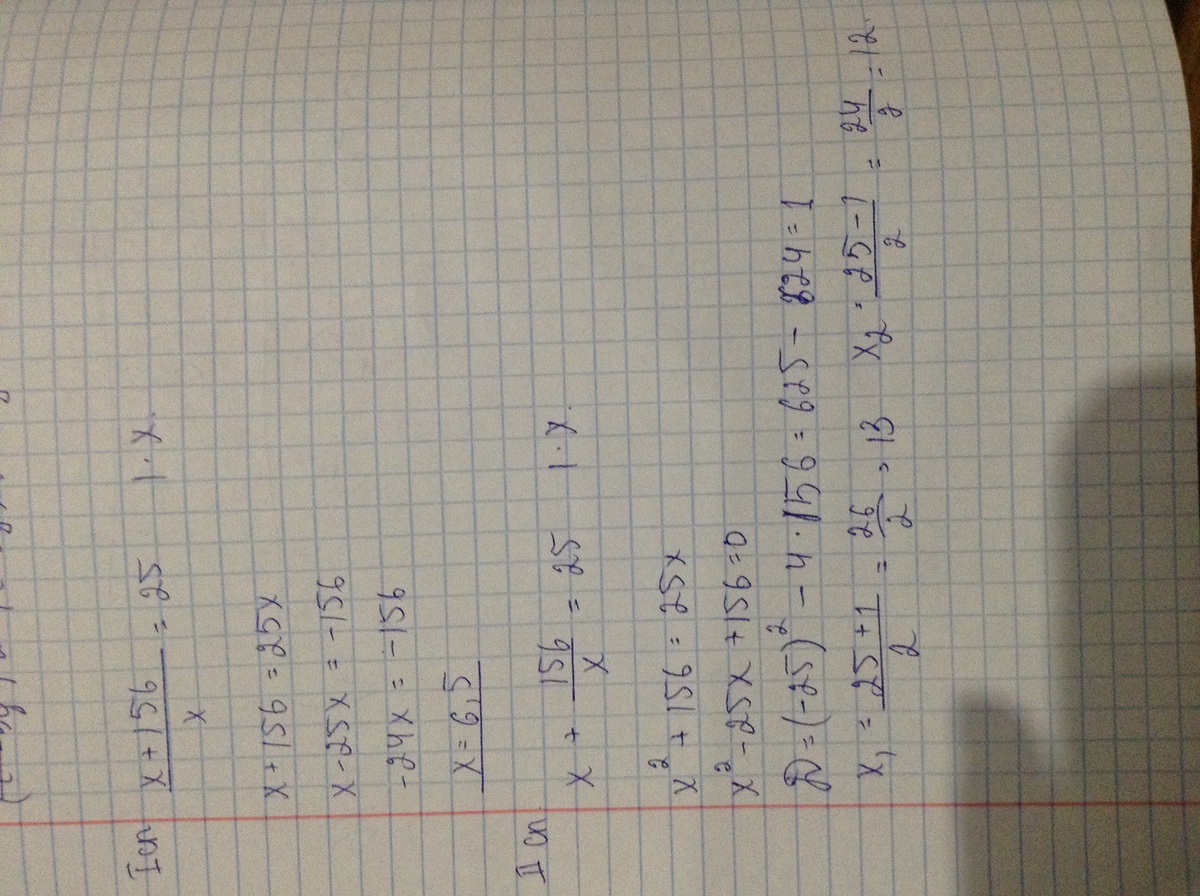 I сп (x+156)/x = 25 |·x.
x+156 = 25x
x-25x = -156
-24x = -156
x = 6,5
II сп x + 156/x = 25 |·x.
x² + 156 = 25x
x² - 25x + 156 = 0
D = (-25)² - 4·156 = 625 - 624 = 1
x₁ = (25+1)/2 = 26/2 = 13 x₂ = (25-1)/2 = 24/2 = 12.